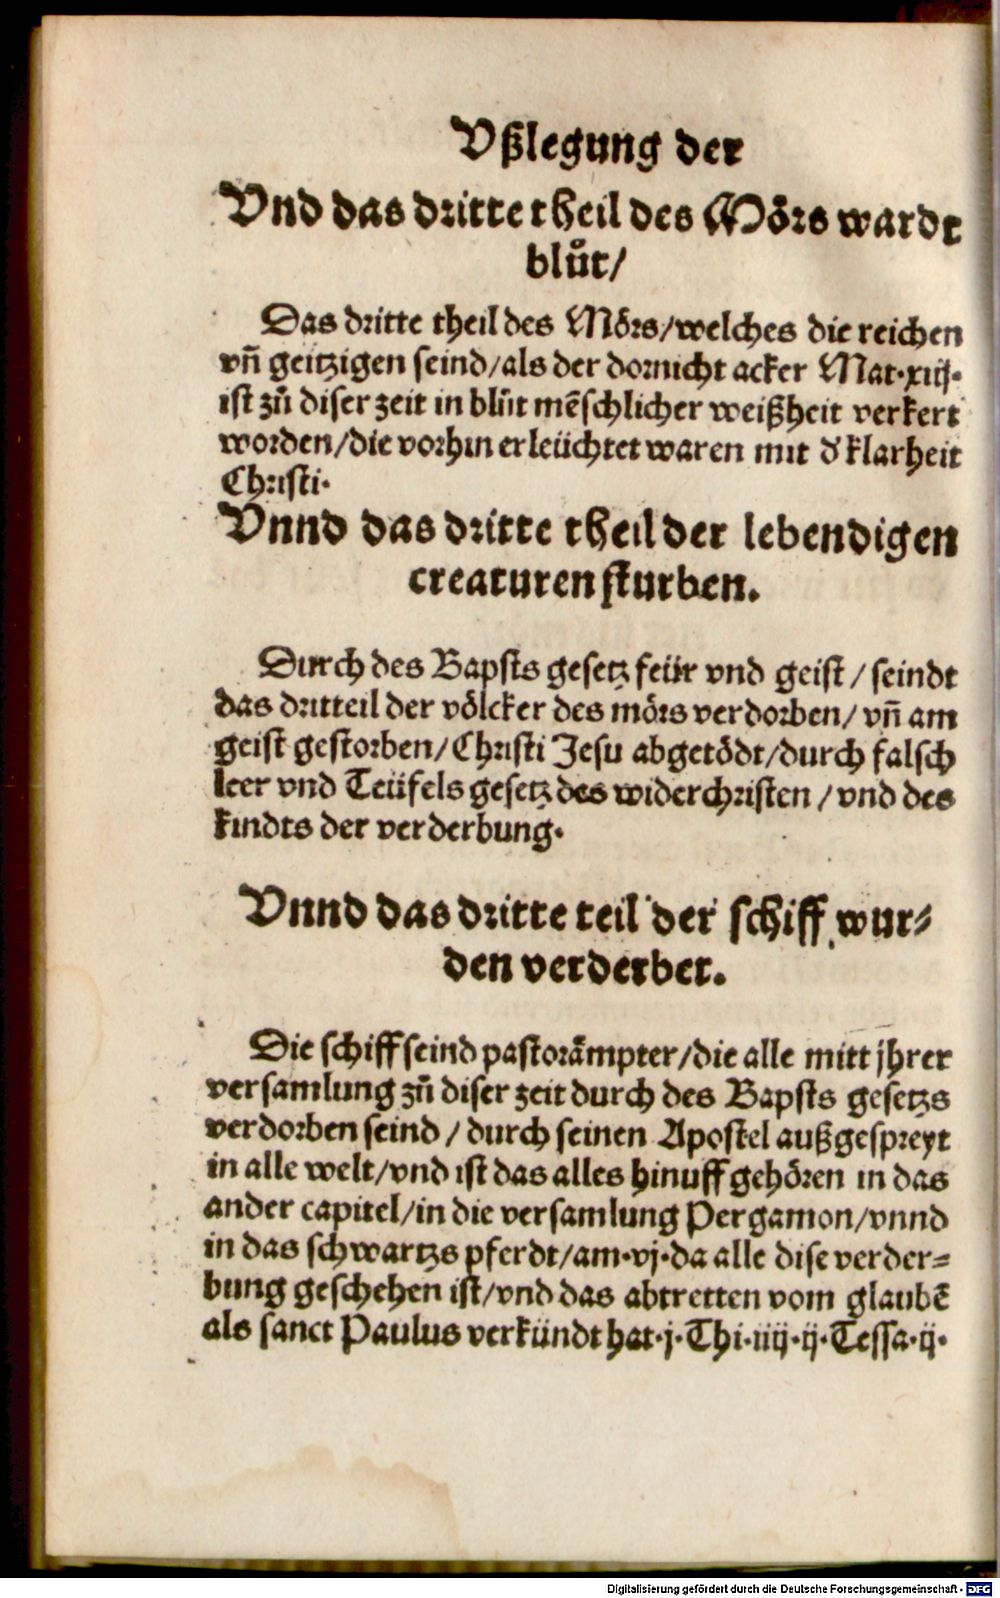 Vßlegung der
Vnd das dritte theil des Mörs wardt
blůt/
Das dritte theil des Mörs/welches die reichen
vñ geitzigen seind/als der dornicht acker Mat.xiij.
ist zů diser zeit in blůt mẽschlicher weißheit verkert
worden/die vorhin erleüchtet waren mit d' klarheit
Christi.
Vnnd das dritte theil der lebendigen
creaturen sturben.
Durch des Bapsts gesetz feür vnd geist/seindt
das dritteil der völcker des mörs verdorben/vñ am
geist gestorben/Christi Jesu abgetödt/durch falsch
leer vnd Teüfels gesetz des widerchristen/vnd des
kindts der verderbung.
Vnnd das dritte teil der schiff wur⸗
den verderbet.
Die schiff seind pastorämpter/die alle mitt jhrer
versamlung zů diser zeit durch des Bapsts gesetzs
verdorben seind/durch seinen Apostel außgespreyt
in alle welt/vnd ist das alles hinuff gehören in das
ander capitel/in die versamlung Pergamon/vnnd
in das schwartzs pferdt/am.vj.da alle dise verder⸗
bung geschehen ist/vnd das abtretten vom glaubẽ
als sanct Paulus verkündt hat.j.Thi.iiij.ij.Tessa.ij.
Digitalisierung gefördert durch die Deutsche Forschungsgemeinschaft - DFG